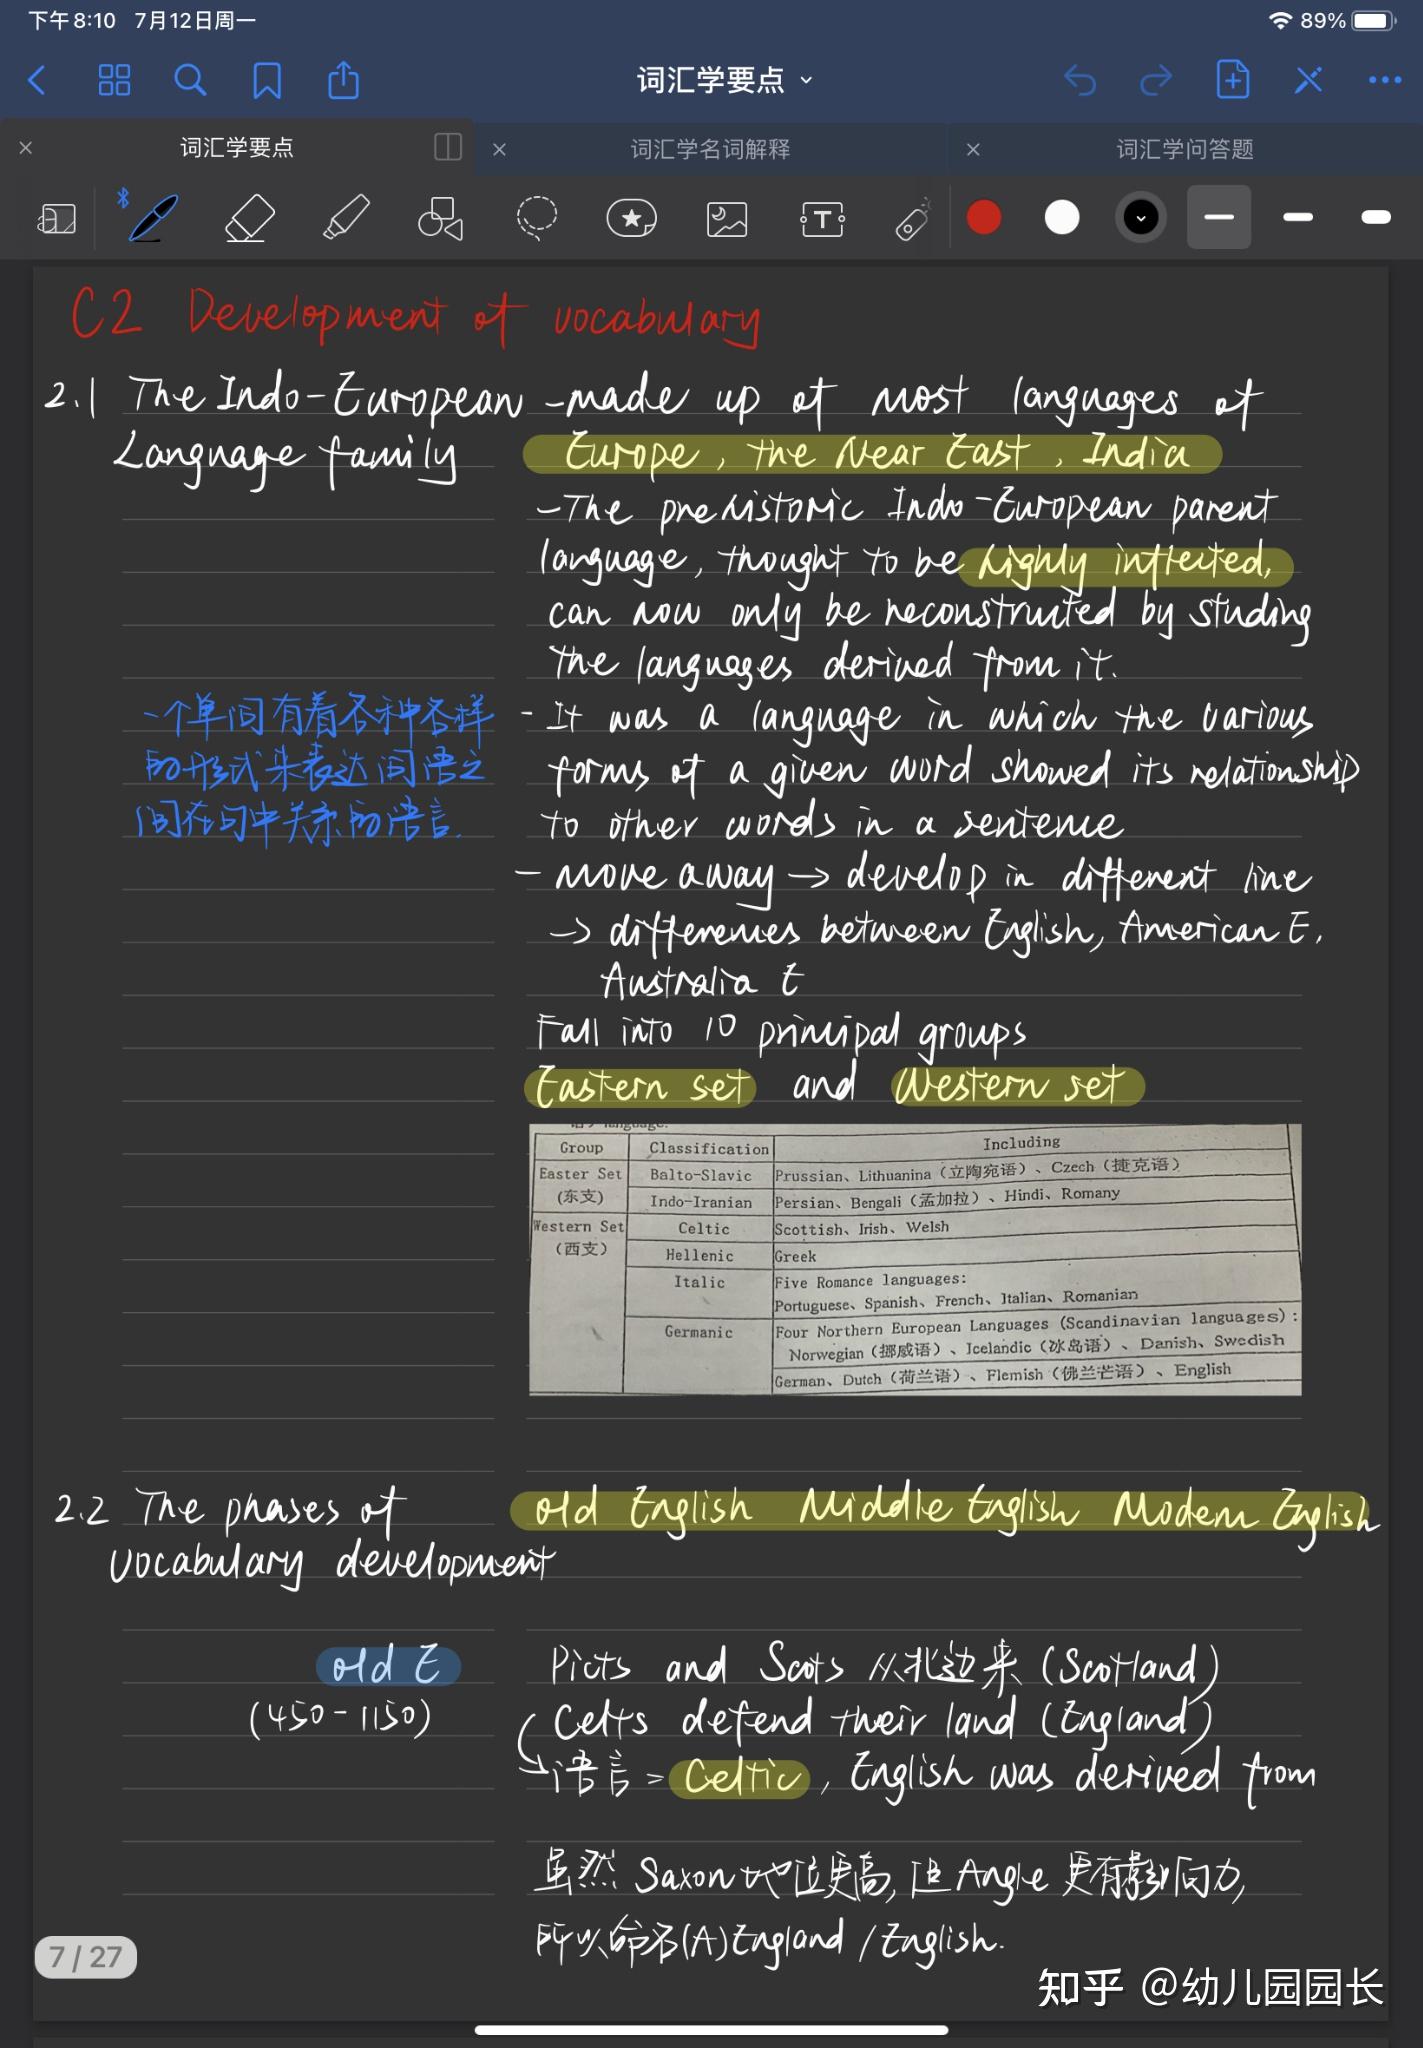 下午8:10 7月12日周一
89%
词汇学要点
词汇学要点
词汇学名词解释
词汇学问答题
C2 Development of vocabulary
2.1 The Indo-European -made up of most languages of
Language family Europe, the Near East, India
-The prehistoric Indo-European parent
language, thought to be highly inflected,
can now only be reconstructed by studing
the languages derived from it.
一个单词有着各种各样 - It was a language in which the various
的形式来表达词语之 forms of a given word showed its relationship
间在句中关系的语言. to other words in a sentence
- move away → develop in different line
→ differences between English, American E,
Australia E
Fall into 10 principal groups
Eastern set and Western set
语) language.
Group Classification Including
Easter Set Balto-Slavic Prussian、Lithuanina（立陶宛语）、Czech（捷克语）
(东支) Indo-Iranian Persian、Bengali（孟加拉）、Hindi、Romany
Western Set Celtic Scottish、Irish、Welsh
（西支） Hellenic Greek
Italic Five Romance languages:
Portuguese、Spanish、French、Italian、Romanian
Germanic Four Northern European Languages (Scandinavian languages):
Norwegian（挪威语）、Icelandic（冰岛语）、Danish、Swedish
German、Dutch（荷兰语）、Flemish（佛兰芒语）、English
2.2 The phases of old English Middle English Modern English
vocabulary development
old E Picts and Scots 从北边来 (Scotland)
(450-1150) Celts defend their land (England)
语言 = Celtic, English was derived from
虽然 Saxon 地位更高, 但 Angle 更有影响力,
所以命名(A)England / English.
7 / 27
知乎 @幼儿园园长